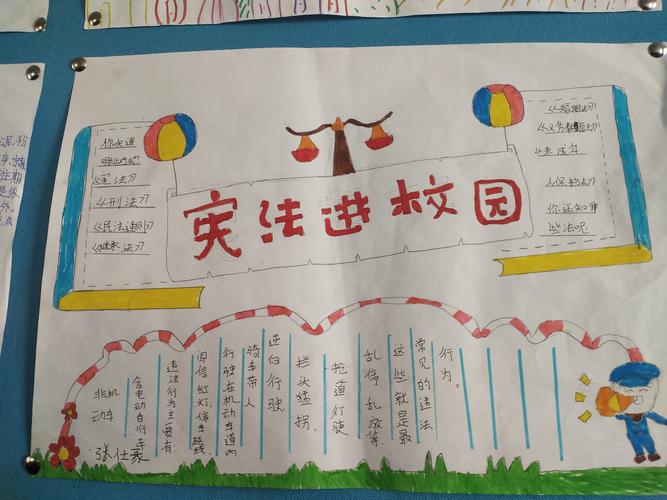 宪法进校园
你知道
哪些法?
《宪法》
《刑法》
《民法通则》
《继承法》
《婚姻法》
《义务教育法》
《未成年
保护法》
你还知哪
些法呢
非机
动车
含电动自行车
违法行为主要有
闯信红灯、停车越线
行驶在机动车道内
骑车带人
逆向行驶
拦头猛拐、
抢道行驶
乱停乱放等
这些就是最
常见的违法
行为。
张仕豪